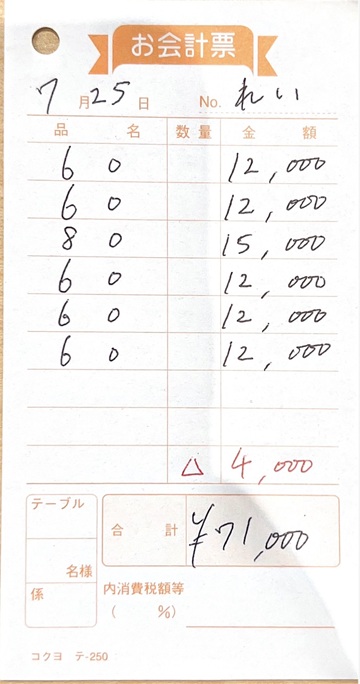 お会計票
7月25日 No. れい
品 名 数量 金 額
60 12,000
60 12,000
80 15,000
60 12,000
60 12,000
60 12,000
△ 4,000
テーブル
名様
係
合 計 ¥71,000
内消費税額等
( %)
コクヨ テ-250